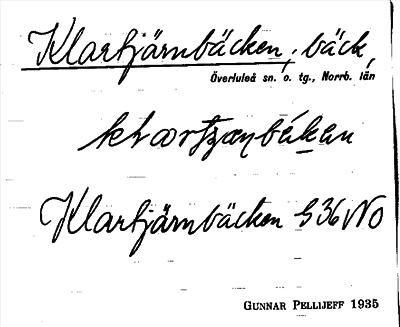 Klartjärnbäcken, bäck,
Överluleå sn. o. tg., Norrb. län
Klartjärnbäcken S36NO
GUNNAR PELLIJEFF 1935